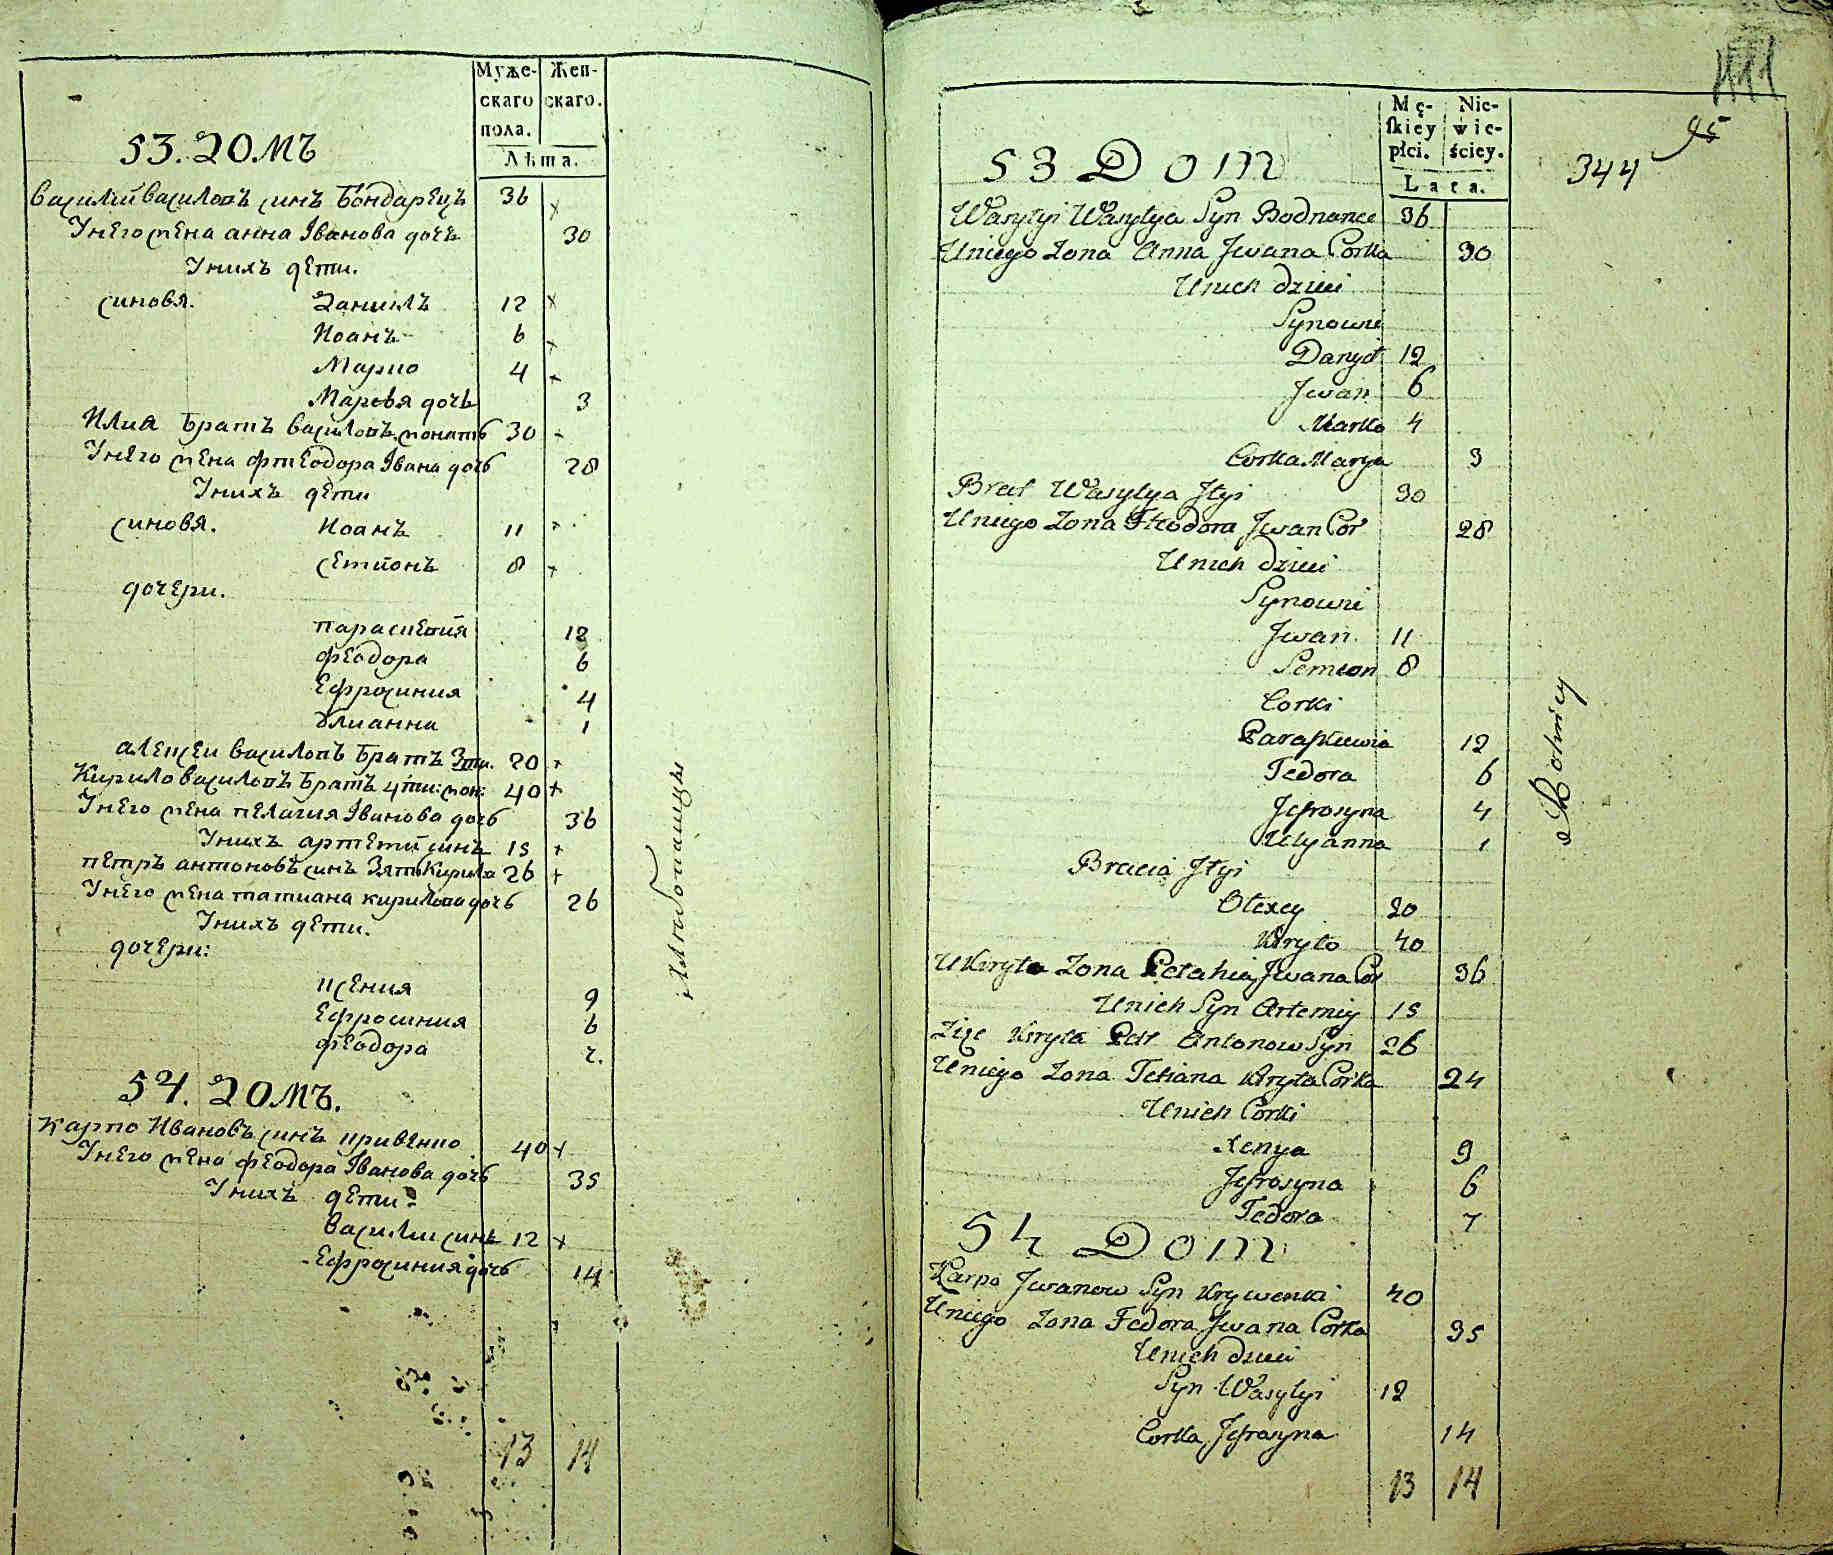 Муже- Жен-
скаго скаго.
пола.
Лѣта.
53. ДОМЪ
Василий Василовъ синъ Бондарецъ 36
У него жена анна Іванова дочь 30
У нихъ дети.
синовя. Даниилъ 12
Иоанъ 6
Марко 4
Маревя дочь 3
Илия Братъ Василовъ женатъ 30
У него жена фтеодора Івана дочь 28
У нихъ дети
синовя. Иоанъ 11
Семионъ 8
дочери.
параскевия 12
феодора 6
Ефросиния 4
улианна 1
алексеи Василовъ Братъ 3ти. 20
Кирило Василовъ Братъ 4ти: жон: 40
У него жена пелагия Іванова дочь 36
У нихъ артемий синъ 15
петръ антоновъ синъ Зять Кирила 26
У него жена татиана кирилова дочь 26
У нихъ дети.
дочери:
ксения 9
Ефросиния 6
феодора 2.
54. ДОМЪ.
Карпо Ивановъ синъ кривенко 40
У него жена феодора Іванова дочь 35
У нихъ дети
Василии синъ 12
Ефросиния дочь 14
13 14
Mę- Nie-
skiey wie-
płci. ściey.
Lata.
95
344
53 Dom
Wasylyi Wasylya Syn Bodnance 36
Uniego Zona Anna Jwana Corka 30
Unich dzieci
Synowie
Danyło 12
Jwan 6
Marko 4
Corka Marya 3
Brat Wasylya Jłyi 30
Uniego Zona Fteodora Jwan Cor 28
Unich dzieci
Synowie
Jwan 11
Semion 8
Corki
Paraskiewia 12
Tedora 6
Jefrosyna 4
Ulyanna 1
Bracia Jłyi
Olexey 20
Kiryło 40
U Kiryła Zona Pelahia Jwana Cor 36
Unich Syn Artemiy 15
Zięc Kiryła Petr Antonow Syn 26
Uniego Zona Tetiana Kiryła Corka 24
Unich Corki
Xenya 9
Jefrosyna 6
Tedora 7
54 Dom
Karpo Jwanow Syn Krywenki 40
Uniego Zona Fedora Jwana Corka 35
Unich dzieci
Syn Wasylyi 12
Corka Jefrosyna 14
13 14
Rolnicy